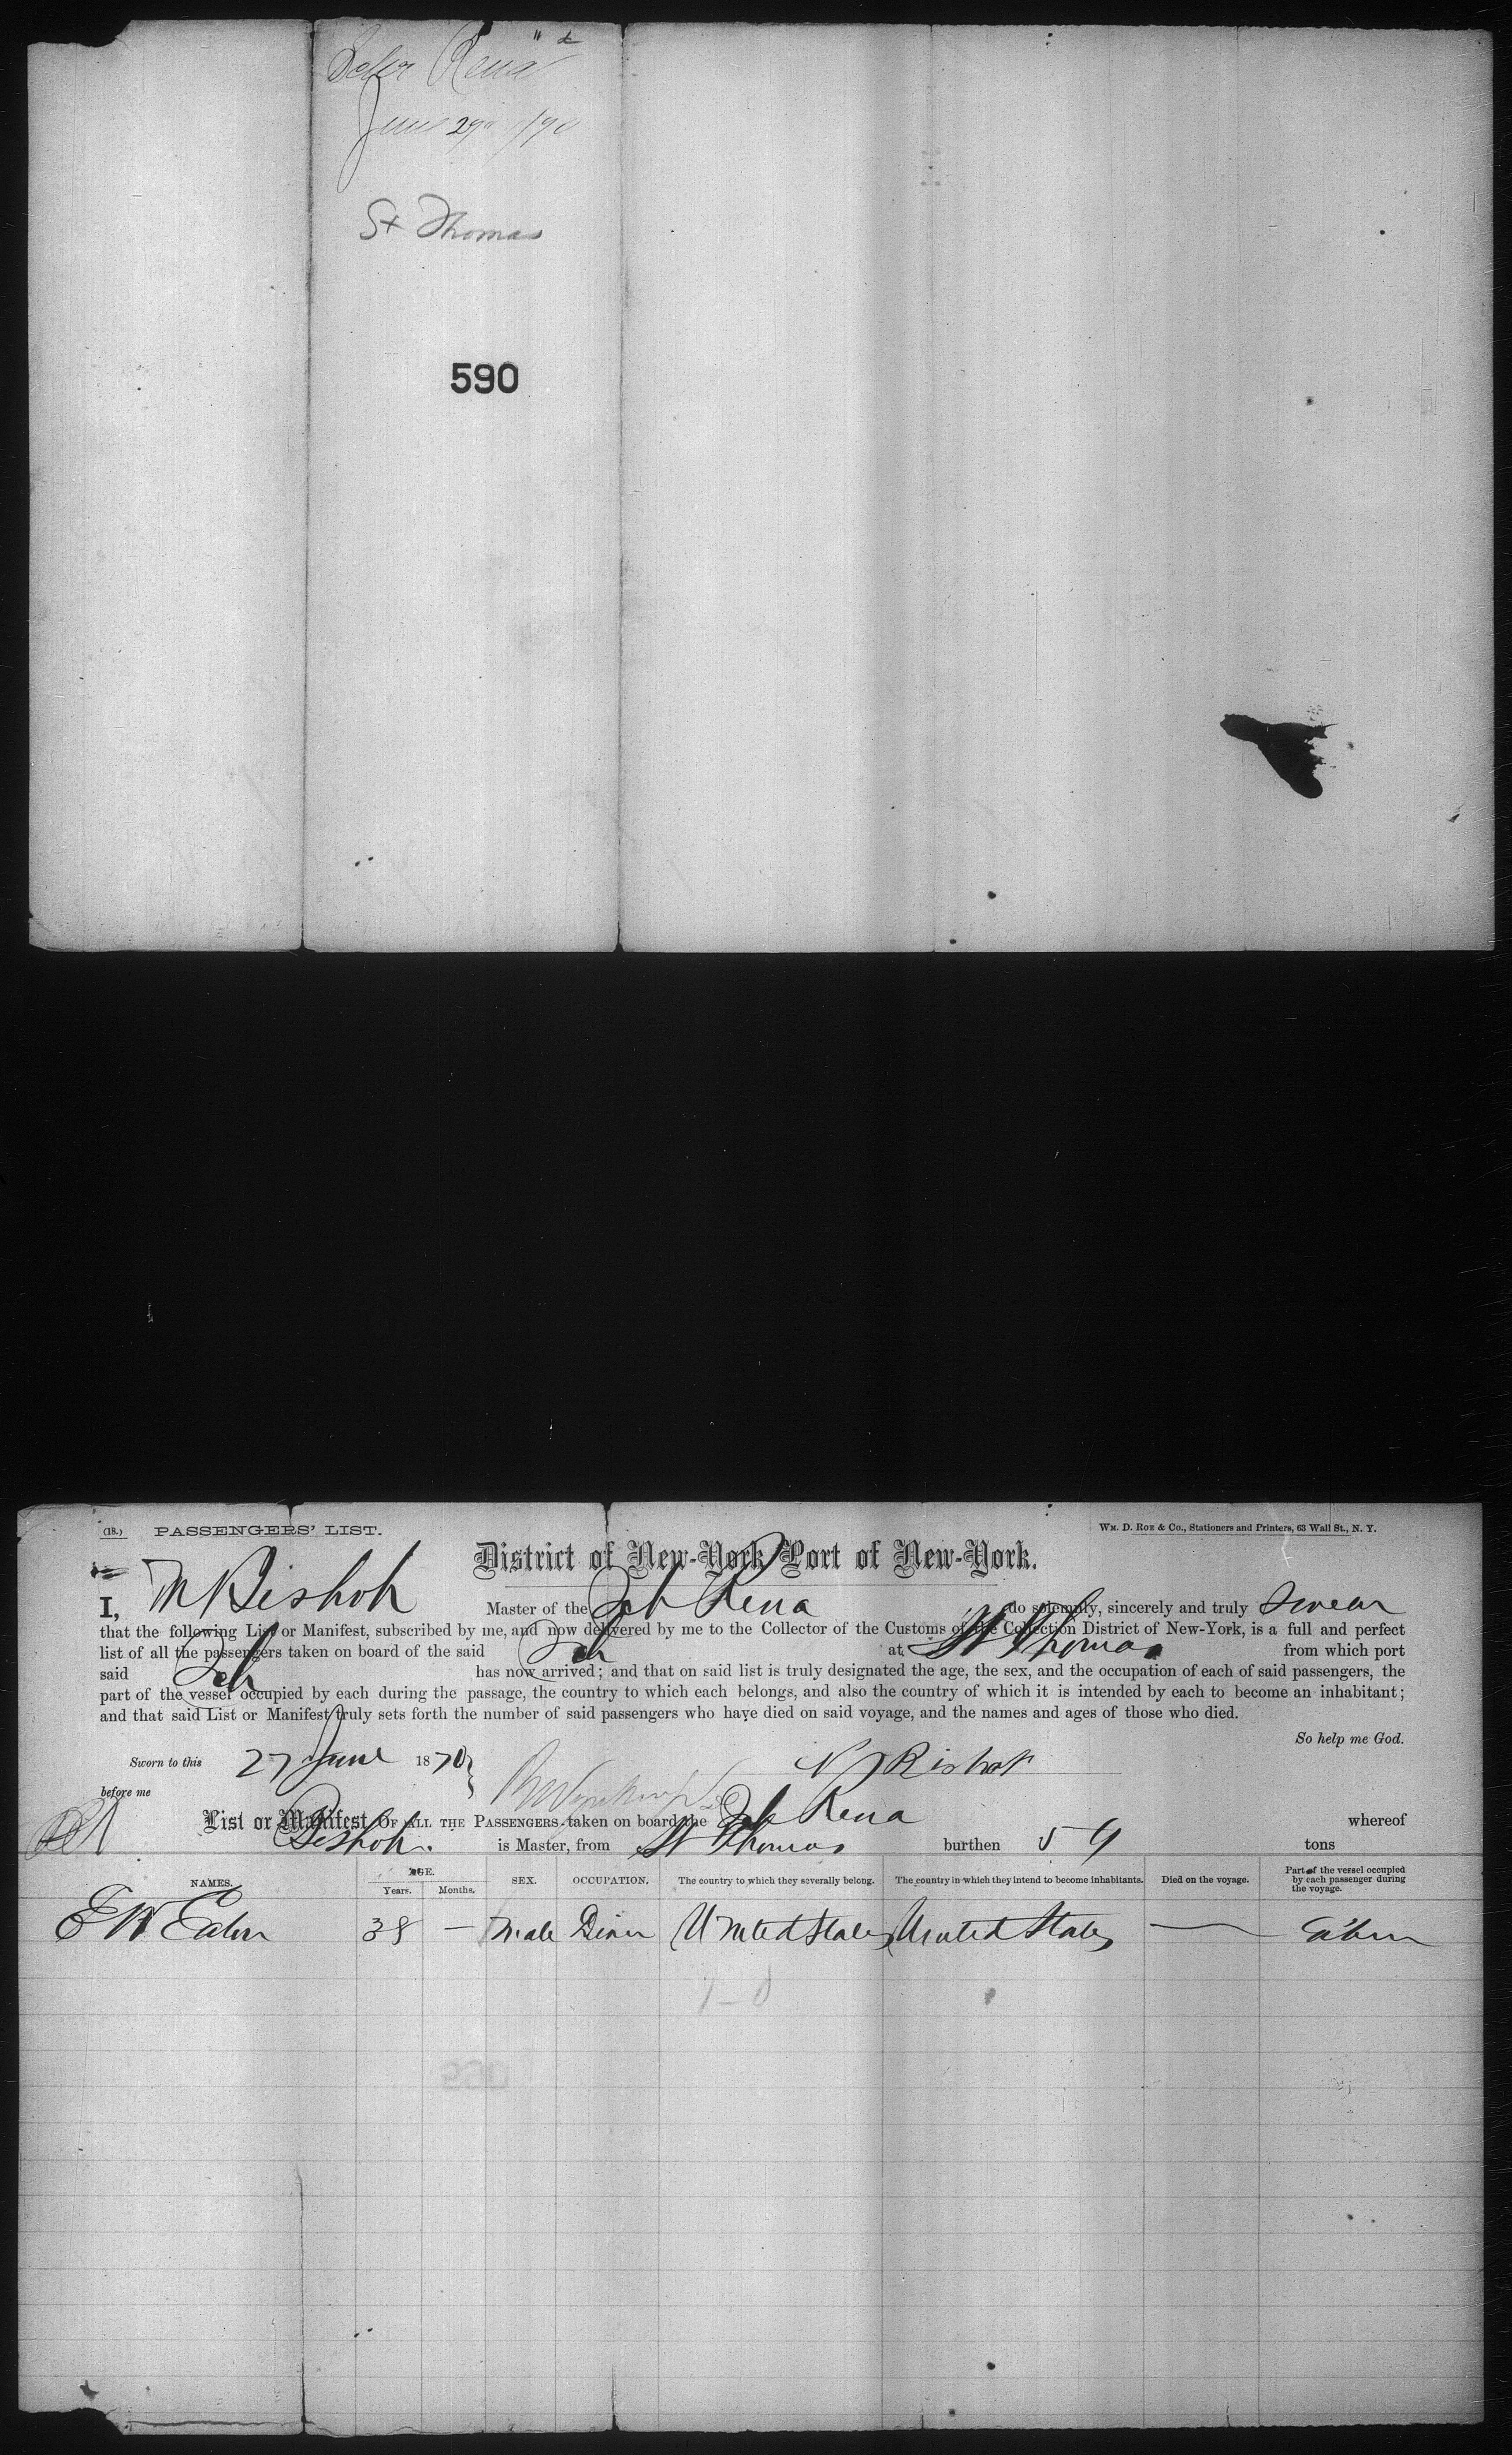 Schr Rena
June 27 1870
St Thomas
590
(18.) PASSENGERS' LIST.
WM. D. ROE & CO., Stationers and Printers, 63 Wall St., N. Y.
District of New-York Port of New-York.
I, M Bishop Master of the Sch Rena do solemnly, sincerely and truly swear
that the following List or Manifest, subscribed by me, and now delivered by me to the Collector of the Customs of the Collection District of New-York, is a full and perfect
list of all the passengers taken on board of the said Sch at St Thomas from which port
said Sch has now arrived; and that on said list is truly designated the age, the sex, and the occupation of each of said passengers, the
part of the vessel occupied by each during the passage, the country to which each belongs, and also the country of which it is intended by each to become an inhabitant;
and that said List or Manifest truly sets forth the number of said passengers who have died on said voyage, and the names and ages of those who died.
So help me God.
Sworn to this 27 June 1870
Bishop
before me
List or Manifest OF ALL THE PASSENGERS taken on board the Sch Rena whereof
Bishop is Master, from St Thomas burthen 59 tons
NAMES. AGE. Years. Months. SEX. OCCUPATION. The country to which they severally belong. The country in which they intend to become inhabitants. Died on the voyage. Part of the vessel occupied by each passenger during the voyage.
E W Eaton 38 — Male Diver United States United States — Cabin